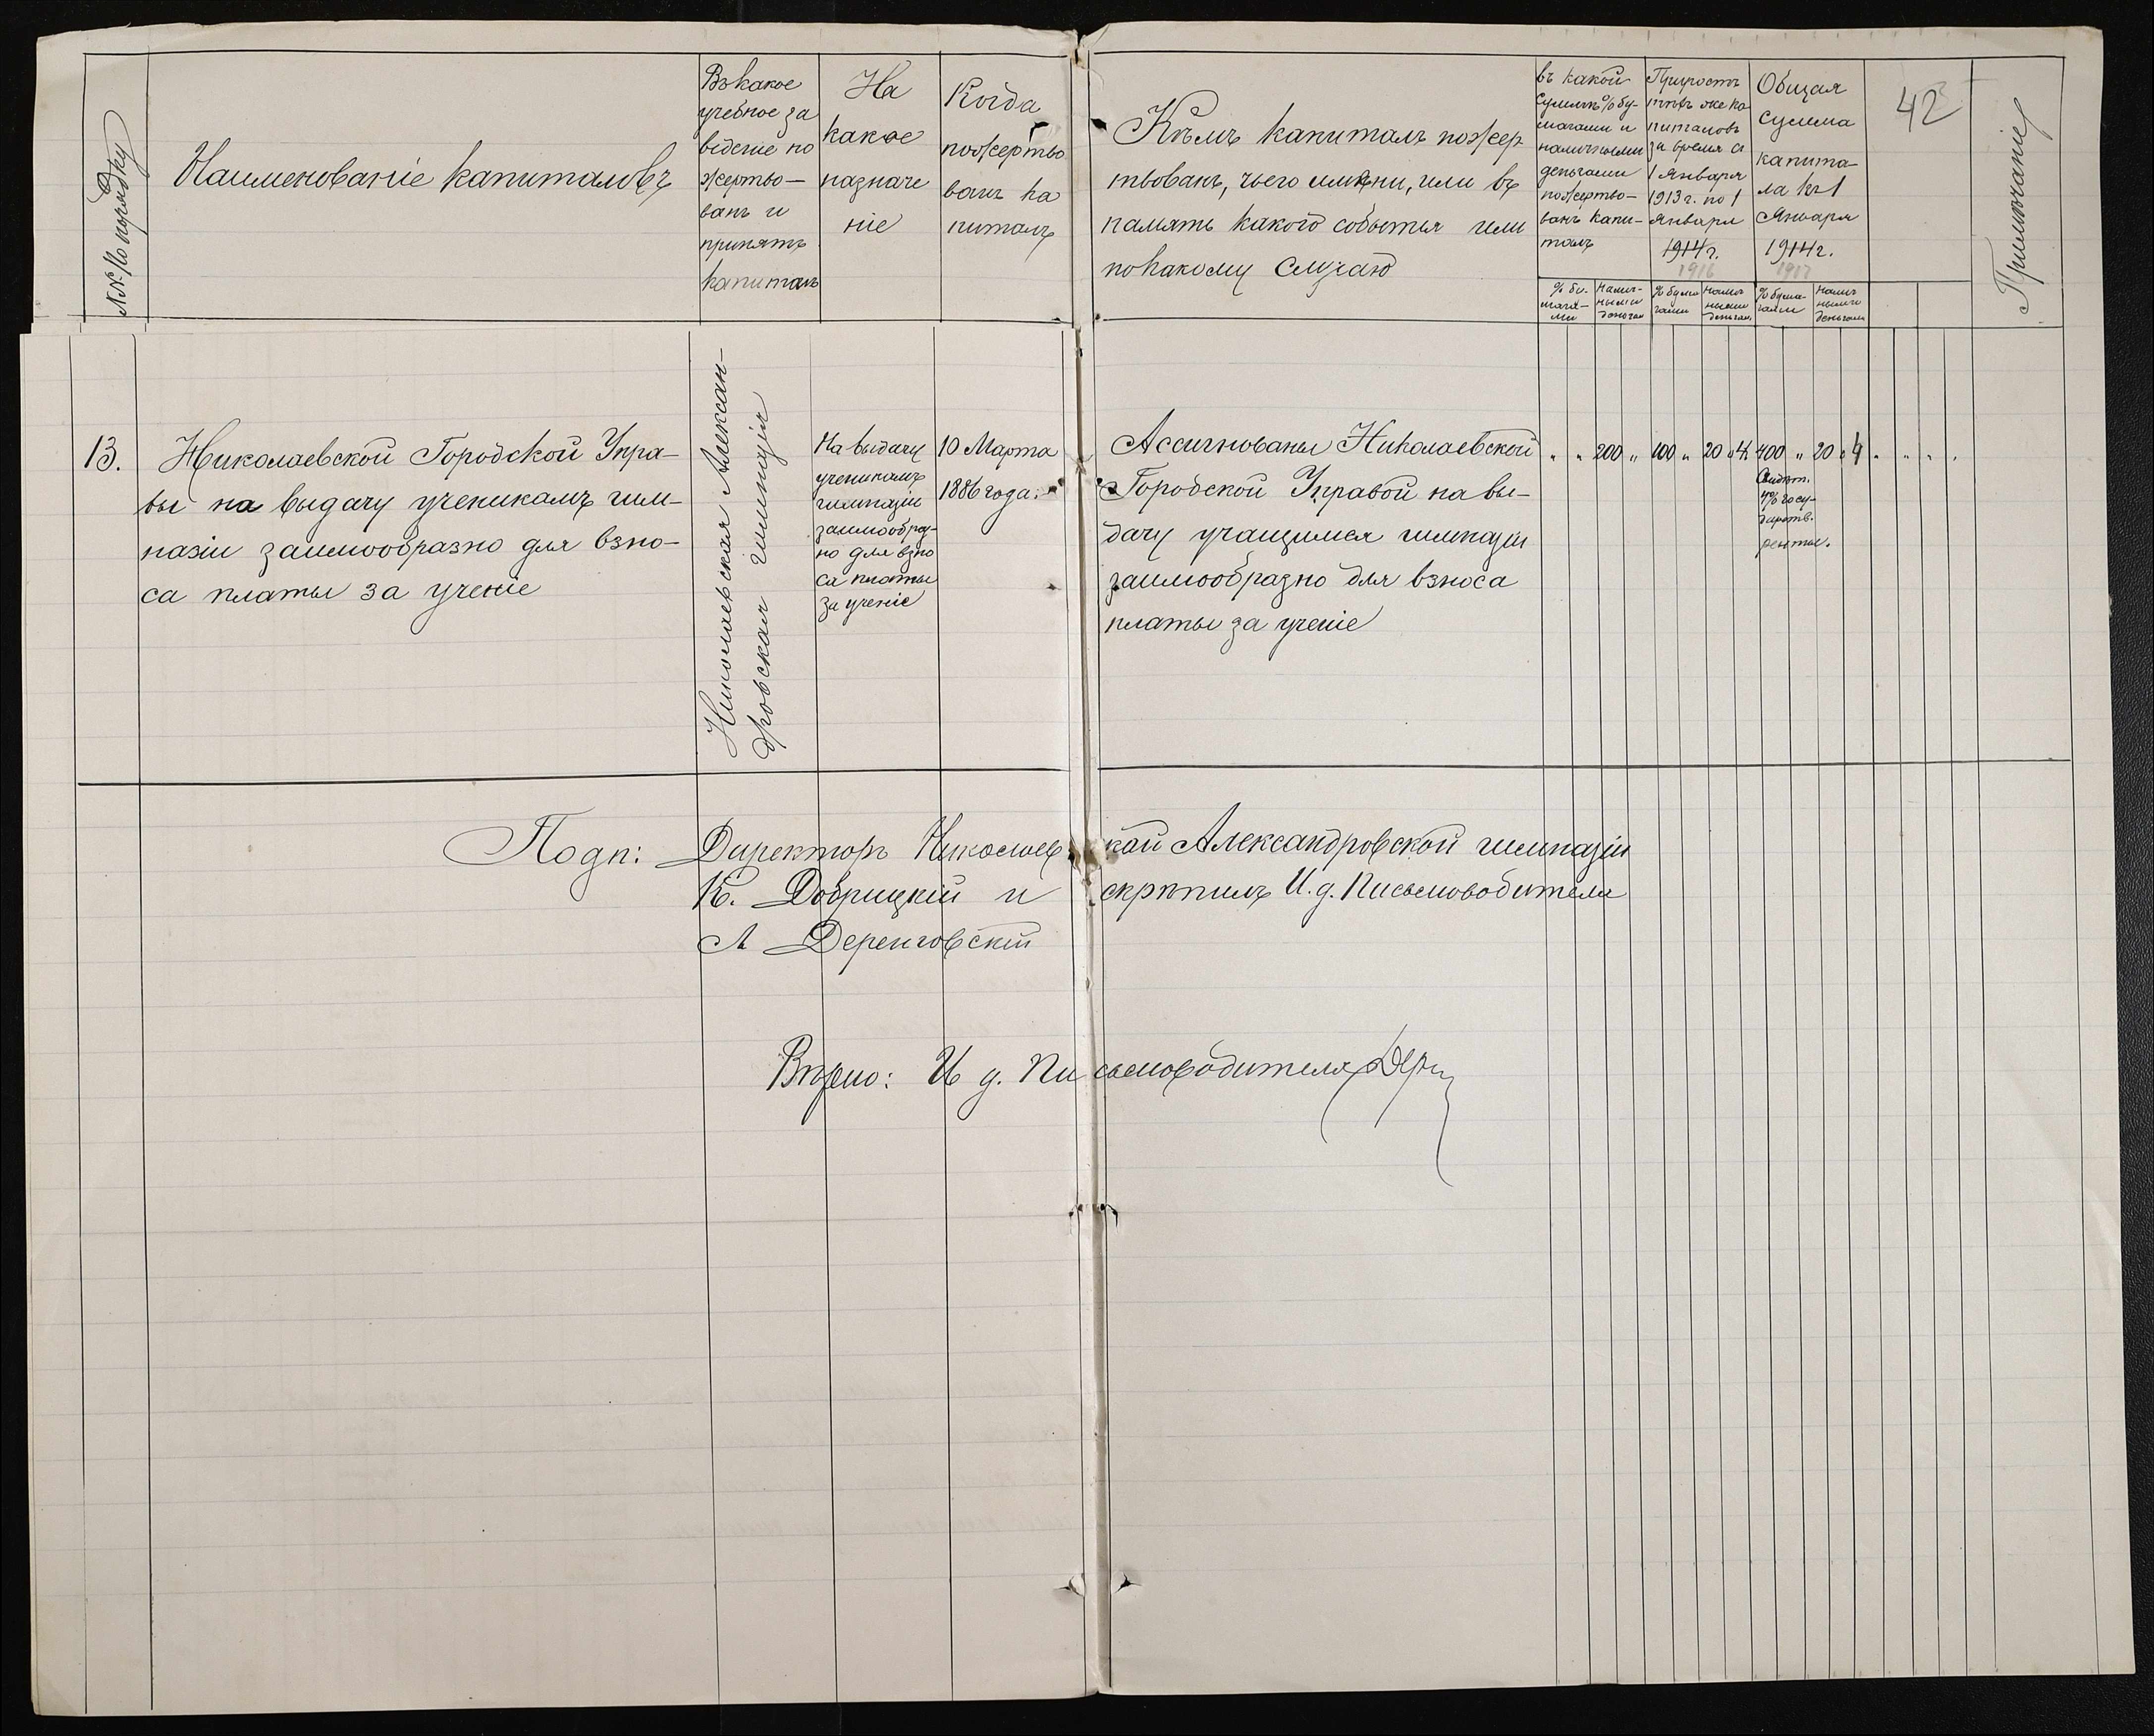 №№ по порядку
Наименованіе капиталовъ
Въ какое
учебное за
веденіе по
жертво-
ванъ и
принятъ
капиталъ
На
какое
назначе
ніе
Когда
пожертво
ванъ ка
питалъ
Кѣмъ капиталъ пожер
твованъ, чьего имени, или въ
память какого событья или
по какому случаю
въ какой
суммѣ % бу-
магами и
наличными
деньгами
пожертво-
ванъ капи-
талъ
% бу-
мага-
ми
налич-
ными
деньгам
Приростъ
тѣхъ же ка
питаловъ
за время съ
1 Января
1913 г. по 1
Января
1914 г.
1916
% бума
гами
налич
ными
деньгам.
Общая
сумма
капита-
ла къ 1
Января
1914 г.
1917
% бума-
гами
налич
ными
деньгами
42
Примѣчаніе
13.
Николаевской Городской Упра-
вы на выдачу ученикамъ гим-
назіи заимообразно для взно-
са платы за ученіе
Николаевская Алексан-
дровская гимназія
На выдачу
ученикамъ
гимназіи
заимообраз-
но для взно
са платы
за ученіе
10 Марта
1886 года.
Ассигнованы Николаевской
Городской Управой на вы-
дачу учащимся гимназіи
заимообразно для взноса
платы за ученіе
" " 200 " 100 " 20 04 400 " 20 04 " " " "
4% госу-
дарств.
ренты.
Подп: Директоръ Николаевской Александровской гимназіи
К. Добрицкій и скрѣпилъ И. д. Письмоводителя
А Деренговскій
Вѣрно: И д. Письмоводителя